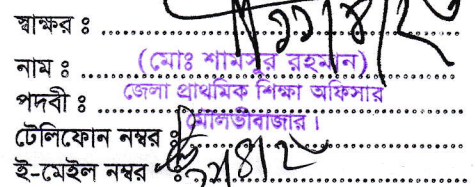 স্বাক্ষর ঃ
নাম ঃ (মোঃ শামসুর রহমান)
পদবী ঃ জেলা প্রাথমিক শিক্ষা অফিসার
মৌলভীবাজার।
টেলিফোন নম্বর ঃ
ই-মেইল নম্বর ঃ